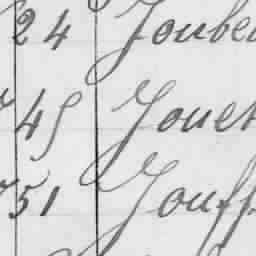 24 Joube
45 Jouet
51 Jouff